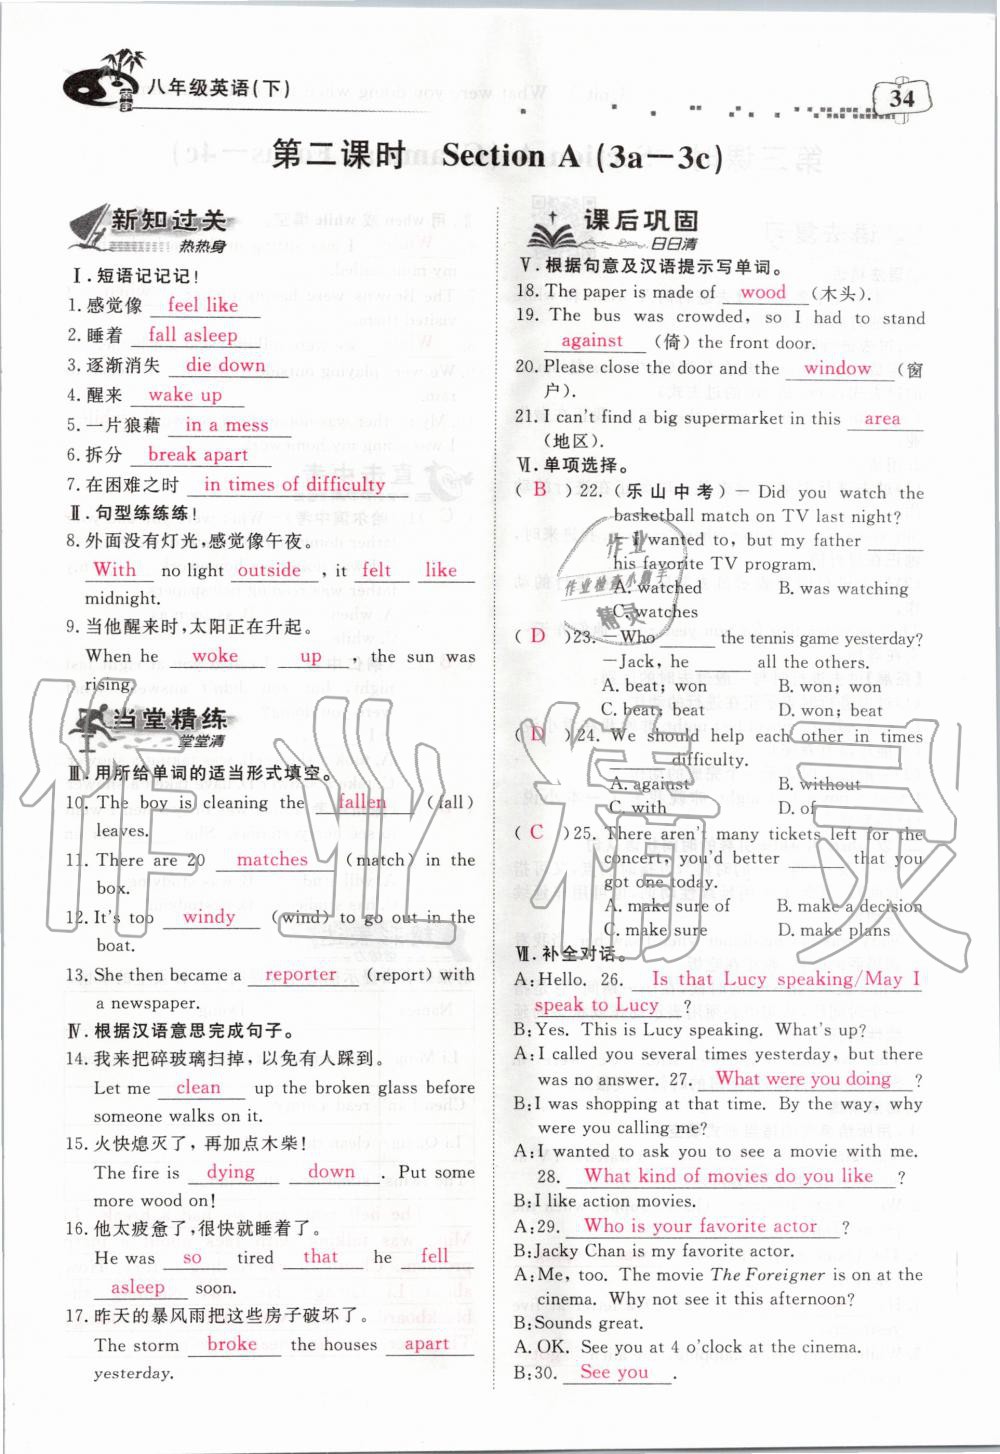 八年级英语(下)
34
第二课时 Section A (3a—3c)
新知过关
热热身
Ⅰ.短语记记记!
1.感觉像 feel like
2.睡着 fall asleep
3.逐渐消失 die down
4.醒来 wake up
5.一片狼藉 in a mess
6.拆分 break apart
7.在困难之时 in times of difficulty
Ⅱ.句型练练练!
8.外面没有灯光,感觉像午夜。
With no light outside, it felt like
midnight.
9.当他醒来时,太阳正在升起。
When he woke up, the sun was
rising.
当堂精练
堂堂清
Ⅲ.用所给单词的适当形式填空。
10.The boy is cleaning the fallen (fall)
leaves.
11.There are 20 matches (match) in the
box.
12.It's too windy (wind) to go out in the
boat.
13.She then became a reporter (report) with
a newspaper.
Ⅳ.根据汉语意思完成句子。
14.我来把碎玻璃扫掉,以免有人踩到。
Let me clean up the broken glass before
someone walks on it.
15.火快熄灭了,再加点木柴!
The fire is dying down. Put some
more wood on!
16.他太疲惫了,很快就睡着了。
He was so tired that he fell
asleep soon.
17.昨天的暴风雨把这些房子破坏了。
The storm broke the houses apart
yesterday.
课后巩固
日日清
Ⅴ.根据句意及汉语提示写单词。
18.The paper is made of wood (木头).
19.The bus was crowded, so I had to stand
against (倚) the front door.
20.Please close the door and the window (窗
户).
21.I can't find a big supermarket in this area
(地区).
Ⅵ.单项选择。
( B )22.(乐山中考)—Did you watch the
basketball match on TV last night?
—I wanted to, but my father ______
his favorite TV program.
A. watched B. was watching
C. watches
( D )23.—Who ______ the tennis game yesterday?
—Jack, he ______ all the others.
A. beat; won B. won; won
C. beat; beat D. won; beat
( D )24. We should help each other in times
______ difficulty.
A. against B. without
C. with D. of
( C )25. There aren't many tickets left for the
concert, you'd better ______ that you
got one today.
A. make sure of B. make a decision
C. make sure D. make plans
Ⅶ.补全对话。
A:Hello. 26. Is that Lucy speaking/May I
speak to Lucy ?
B:Yes. This is Lucy speaking. What's up?
A:I called you several times yesterday, but there
was no answer. 27. What were you doing ?
B:I was shopping at that time. By the way, why
were you calling me?
A:I wanted to ask you to see a movie with me.
28. What kind of movies do you like ?
B:I like action movies.
A:29. Who is your favorite actor ?
B:Jacky Chan is my favorite actor.
A:Me, too. The movie The Foreigner is on at the
cinema. Why not see it this afternoon?
B:Sounds great.
A:OK. See you at 4 o'clock at the cinema.
B:30. See you .
作业精灵
作业
作业检查小助手
精灵